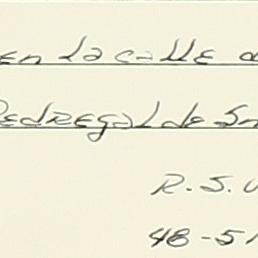 en la calle d
Pedregal de Sn
R.S.U
48-51